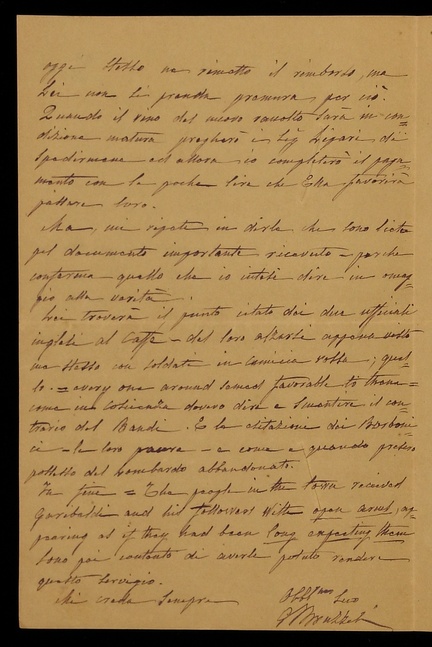 oggi stesso ne rimetto il rimborso, ma
Lei non si prenda premura per ciò.
Quando il vino del nuovo raccolto sarà in con-
dizione matura pregherò i Sigi Ligari di
spedirmene ed allora io completerò il paga-
mento con le poche lire che Ella favorirà
passare loro.
Ma, mi ripeto in dirle che sono lieto
pel documento importante ricevuto – perchè
conferma quello che io intesi dire in omag-
gio alla verità.
Lei troverà il punto citato dai due ufficiali
inglesi al Caffe – del loro alzarsi appena
me stesso con soldati in camicia rossa; quel-
lo = every one around seemed favorable to them =
come in coscienza dovevo dire e smentire il con-
trario del Bandi. E la esitazione dei Borboni-
ci – le loro paure – e come e quando presero
possesso del lombardo abbandonato.
In fine = The people in the town received
Garibaldi and his followers with open arms, ap-
pearing as if they had been long expecting them
Sono poi contento di averle potuto rendere
questo servigio.
Mi creda sempre
Obblmo Suo